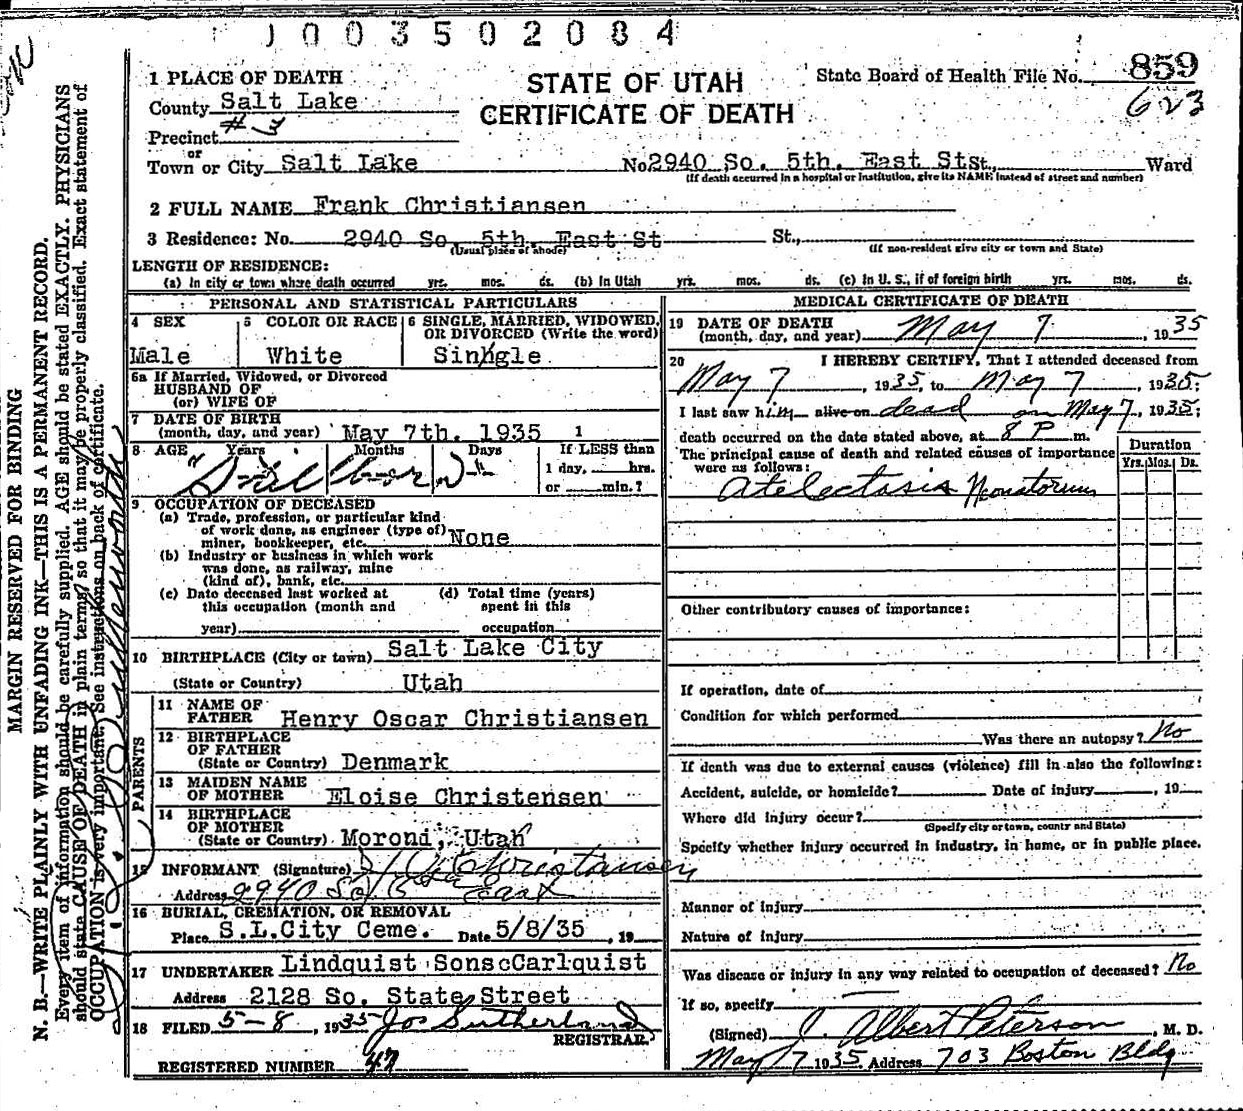 J 0 0 3 5 0 2 0 8 4
1 PLACE OF DEATH
STATE OF UTAH
CERTIFICATE OF DEATH
State Board of Health File No. 859
623
County Salt Lake
Precinct # 3
or
Town or City Salt Lake No. 2940 So. 5th. East St St., Ward
(If death occurred in a hospital or institution, give its NAME instead of street and number)
2 FULL NAME Frank Christiansen
3 Residence: No. 2940 So. 5th. East St St.,
(Usual place of abode) (If non-resident give city or town and State)
LENGTH OF RESIDENCE:
(a) In city or town where death occurred yrs. mos. ds. (b) In Utah yrs. mos. ds. (c) In U. S., if of foreign birth yrs. mos. ds.
PERSONAL AND STATISTICAL PARTICULARS
4 SEX
Male
5 COLOR OR RACE
White
6 SINGLE, MARRIED, WIDOWED, OR DIVORCED (Write the word)
Single
6a If Married, Widowed, or Divorced
HUSBAND OF
(or) WIFE OF
7 DATE OF BIRTH
(month, day, and year) May 7th. 1935 1
8 AGE Years Months Days If LESS than
1 day, hrs.
or min.?
"Still born"
9 OCCUPATION OF DECEASED
(a) Trade, profession, or particular kind
of work done, as engineer (type of)
miner, bookkeeper, etc. None
(b) Industry or business in which work
was done, as railway, mine
(kind of), bank, etc.
(c) Date deceased last worked at
this occupation (month and
year)
(d) Total time (years)
spent in this
occupation
10 BIRTHPLACE (City or town) Salt Lake City
(State or Country) Utah
PARENTS
11 NAME OF
FATHER Henry Oscar Christiansen
12 BIRTHPLACE
OF FATHER
(State or Country) Denmark
13 MAIDEN NAME
OF MOTHER Eloise Christensen
14 BIRTHPLACE
OF MOTHER
(State or Country) Moroni, Utah
15 INFORMANT (Signature) H. O. Christiansen
Address 2940 So. 5th East
16 BURIAL, CREMATION, OR REMOVAL
Place S.L.City Ceme. Date 5/8/35, 19
17 UNDERTAKER Lindquist Sons Carlquist
Address 2128 So. State Street
18 FILED 5-8, 1935 Jos Sutherland
REGISTRAR
REGISTERED NUMBER 47
MEDICAL CERTIFICATE OF DEATH
19 DATE OF DEATH
(month, day, and year) May 7 1935
20 I HEREBY CERTIFY, That I attended deceased from
May 7, 1935, to May 7, 1935;
I last saw him alive on dead on May 7, 1935;
death occurred on the date stated above, at 8 P m.
The principal cause of death and related causes of importance
were as follows:
Duration
Yrs. Mos. Ds.
Atelectasis Neonatorum
Other contributory causes of importance:
If operation, date of
Condition for which performed
Was there an autopsy? No
If death was due to external causes (violence) fill in also the following:
Accident, suicide, or homicide? Date of injury , 19
Where did injury occur?
(Specify city or town, county and State)
Specify whether injury occurred in industry, in home, or in public place.
Manner of injury
Nature of injury
Was disease or injury in any way related to occupation of deceased? No
If so, specify
(Signed) J. Albert Peterson, M. D.
May 7 1935 Address 703 Boston Bldg
MARGIN RESERVED FOR BINDING
N. B.—WRITE PLAINLY WITH UNFADING INK—THIS IS A PERMANENT RECORD.
Every item of information should be carefully supplied. AGE should be stated EXACTLY. PHYSICIANS
should state CAUSE OF DEATH in plain terms, so that it may be properly classified. Exact statement of
OCCUPATION is very important. See instructions on back of certificate.